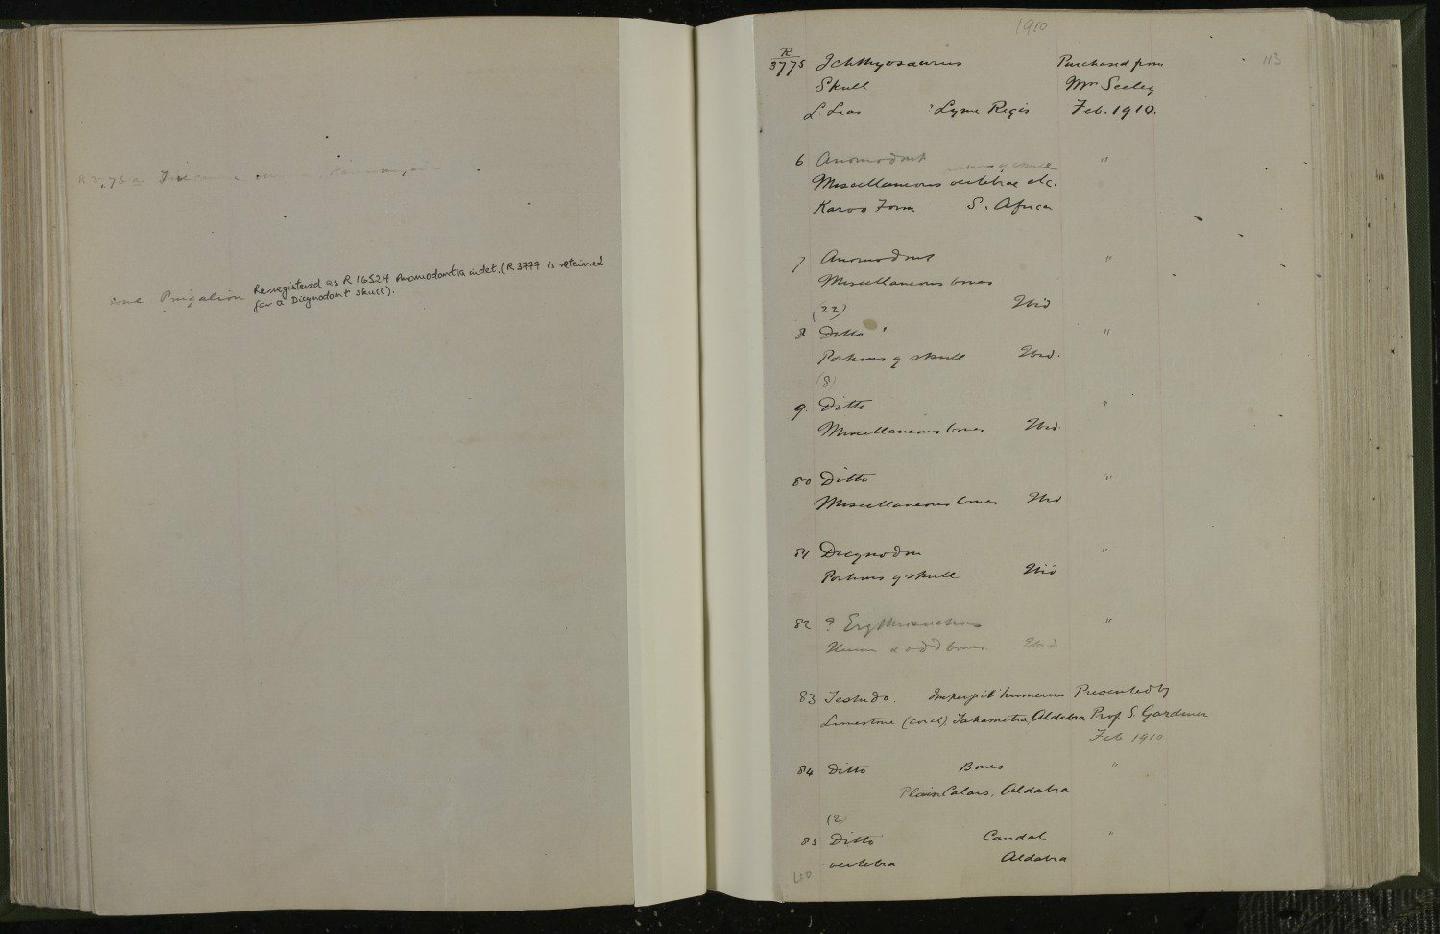 one Prigalion Re-registered as R 16524 Anomodontia indet. (R 3777 is retained
for a Dicynodont skull).
1910
113
R
3775 Ichthyosaurus Purchased from
Skull Mrs Seeley
L. Lias ? Lyme Regis Feb. 1910.
6 Anomodont "
Miscellaneous vertebrae etc.
Karoo Form S. Africa
7 Anomodont "
Miscellaneous bones
(22) Ibid
8 Ditto "
Portions of skull Ibid.
(8)
9. Ditto "
Miscellaneous bones Ibid.
80 Ditto "
Miscellaneous bones Ibid
81 Dicynodon "
Portions of skull Ibid
82 ? Erythrosuchus "
& odd bones Ibid
83 Testudo. Imperfect humerus Presented by
Limestone (coral), Takamaka, Aldabra Prof S. Gardiner
Feb 1910
84 Ditto Bones "
Plain Cabars, Aldabra
(2)
85 Ditto Caudal "
vertebra Aldabra